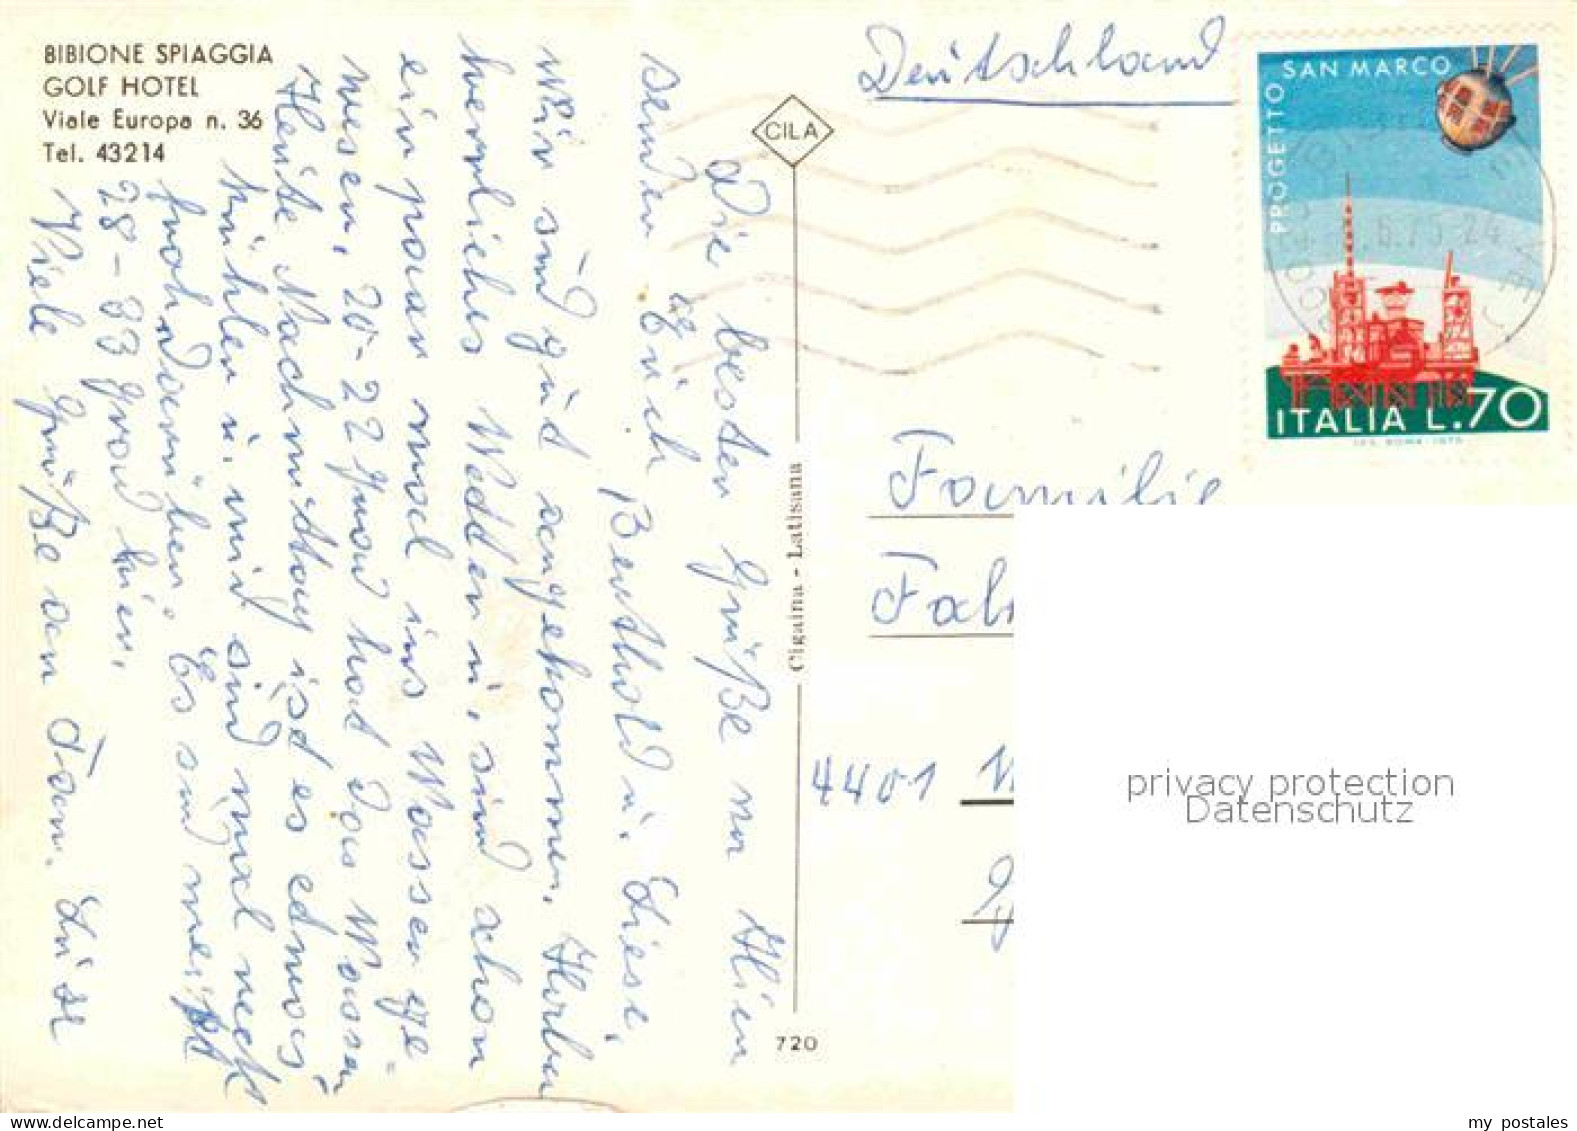 BIBIONE SPIAGGIA
GOLF HOTEL
Viale Europa n. 36
Tel. 43214
Die besten Grüße von Hier
senden Euch Berthold u. Liesel,
Wir sind gut angekommen, Haben
herrliches Wetter u. sind schon
ein paar mal ins Wasser ge-
wesen, 20-22 Grad hat das Wasser
Heute Nachmittag ist es etwas
kühler u. wir sind mal nach
28-33 Grad hier.
Viele Grüße an Fam.
CILA
Cigaina - Latisana
720
Deutschland
PROGETTO SAN MARCO
ITALIA L.70
I.P.S. ROMA 1975
6.75 24
Familie
Fah
4401
privacy protection
Datenschutz
my postales